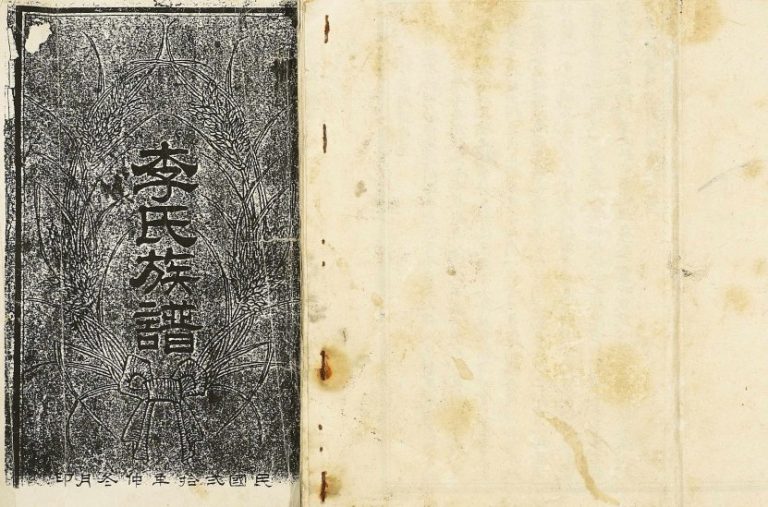 李氏族譜
民國弍拾年仲冬月印